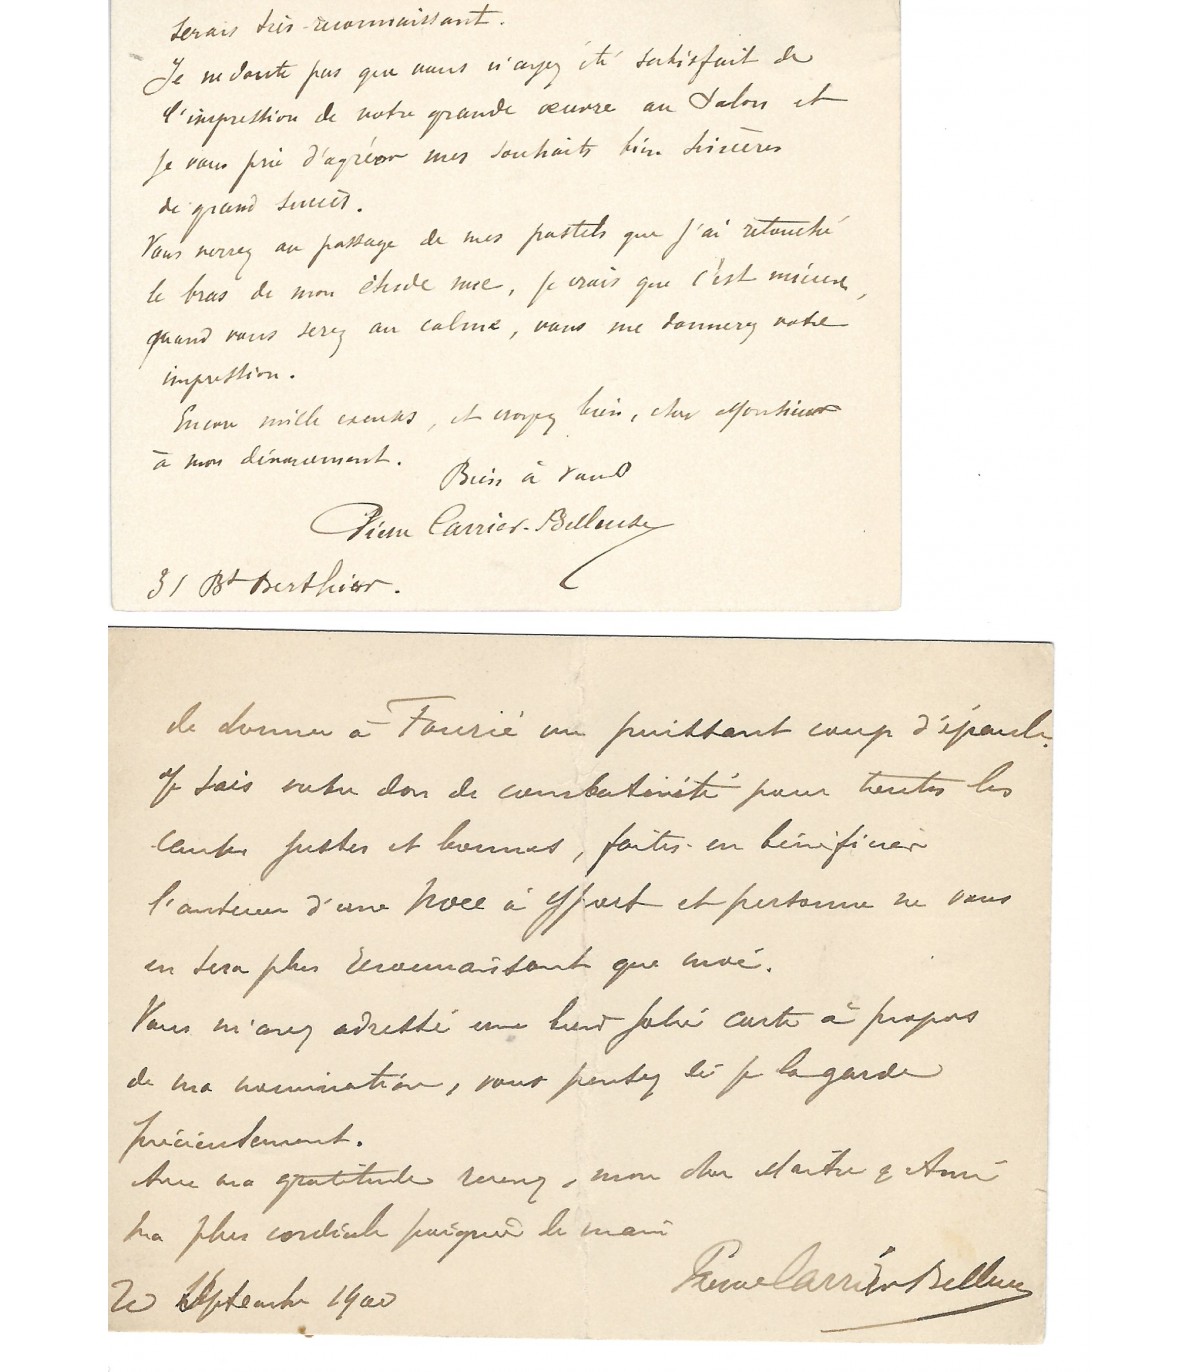 serais très reconnaissant.
Je ne doute pas que vous n'ayez été satisfait de
l'impression de votre grande œuvre au Salon et
je vous prie d'agréer mes souhaits bien sincères
de grand succès.
Vous verrez au passage de mes pastels que j'ai retouché
le bras de mon étude nue, je crois que c'est mieux,
quand vous serez au calme, vous me donnerez votre
impression.
Encore mille excuses, et croyez bien, cher Monsieur
à mon dévouement.
Bien à vous
Pierre Carrier-Belleuse
31 Bd Berthier.
de donner à Fourié un puissant coup d'épaule.
Je sais votre don de combativité pour toutes les
causes justes et bonnes, faites-en bénéficier
l'auteur d'une Noce à Yport et personne ne vous
en sera plus reconnaissant que moi.
Vous m'avez adressé une bien jolie carte à propos
de ma nomination, vous pensez si je la garde
précieusement.
Avec ma gratitude recevez, mon cher Maître & Ami
ma plus cordiale poignée de main
Pierre Carrier-Belleuse
Septembre 1900